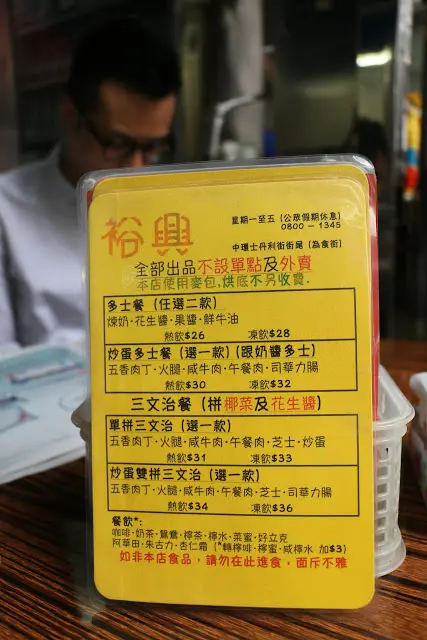 裕興
星期一至五 (公眾假期休息)
0800 - 1345
中環士丹利街街尾 (為食街)
全部出品不設單點及外賣
本店使用麥包,烘底不另收費.
多士餐 (任選二款)
煉奶·花生醬·果醬·鮮牛油
熱飲$26 凍飲$28
炒蛋多士餐 (選一款) (跟奶醬多士)
五香肉丁·火腿·咸牛肉·午餐肉·司華力腸
熱飲$30 凍飲$32
三文治餐 (拼椰菜及花生醬)
單拼三文治 (選一款)
五香肉丁·火腿·咸牛肉·午餐肉·芝士·炒蛋
熱飲$31 凍飲$33
炒蛋雙拼三文治 (選一款)
五香肉丁·火腿·咸牛肉·午餐肉·芝士·司華力腸
熱飲$34 凍飲$36
餐飲*:
咖啡·奶茶·鴛鴦·檸茶·檸水·菜蜜·好立克
阿華田·朱古力·杏仁霜 (*轉檸啡·檸蜜·咸檸水 加$3)
如非本店食品, 請勿在此進食, 面斥不雅